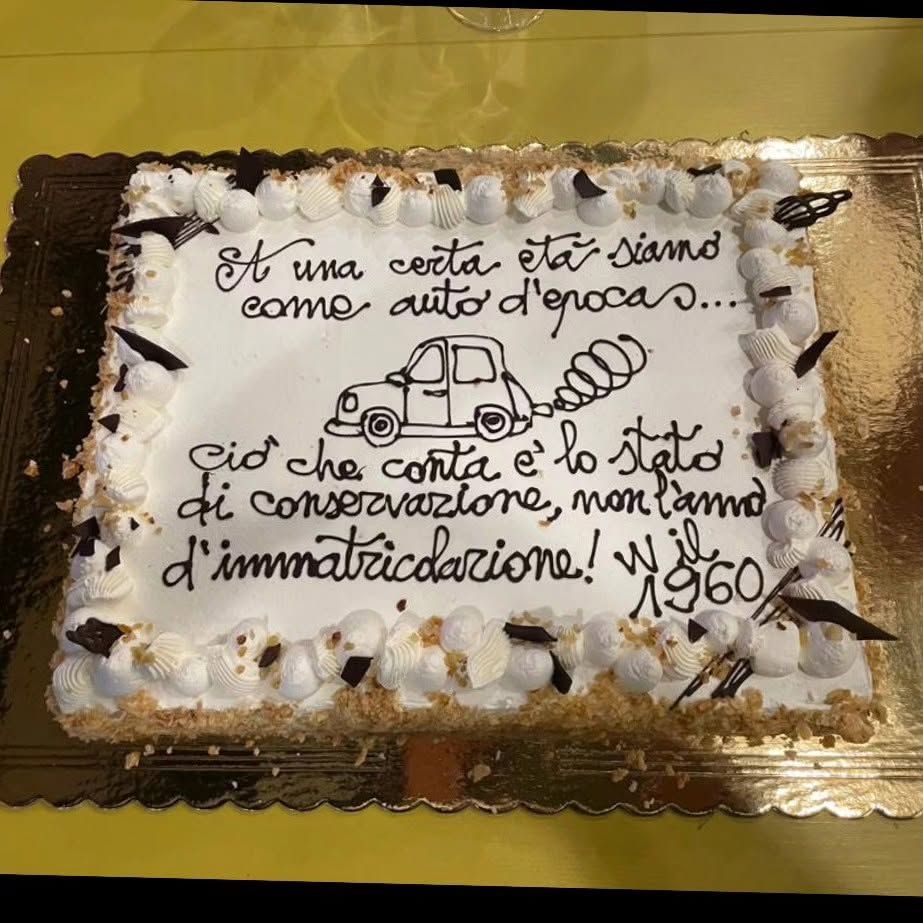 A una certa età siamo
come auto d'epoca...
Ciò che conta è lo stato
di conservazione, non l'anno
d'immatricolazione! W il
1960